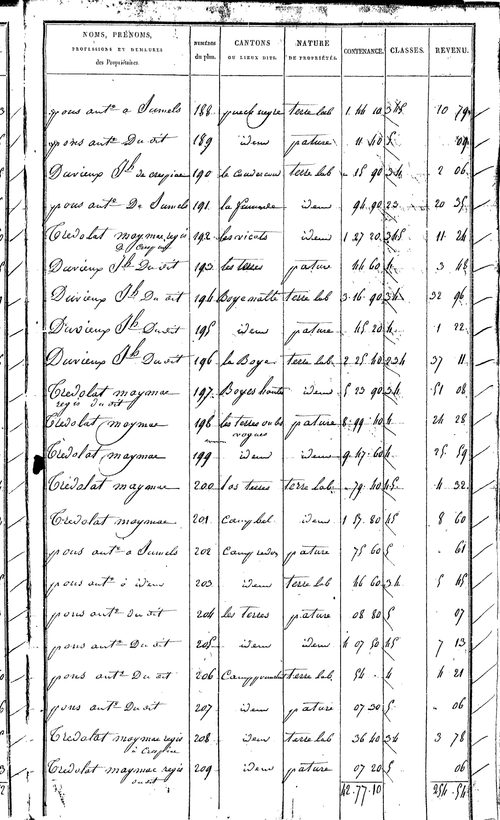 NOMS, PRÉNOMS, PROFESSIONS ET DEMEURES des Propriétaires. NUMÉROS du plan. CANTONS OU LIEUX DITS. NATURE DE PROPRIÉTÉS. CONTENANCE. CLASSES. REVENU.
pons antne a Jumels 188 puech negre terre lab 1 46 10 345 10 79
pons antne Du dit 189 idem pature 11 40 5 09
Duvieux Jh de crespiac 190 le couderc terre lab 15 90 34 2 06
pons antne De Jumels 191 la idem 94 90 23 20 35
Tredolat maymac regis 192 les vicats idem 1 27 20 345 11 24
Duvieux Jh Du dit 193 les terres pature 44 60 4 3 48
Duvieux Jh Du dit 194 Boye matte terre lab 3 16 90 34 32 96
Duvieux Jh Du dit 195 idem pature 45 20 4 1 22
Duvieux Jh Du dit 196 la Boye terre lab 2 25 40 234 37 11
Tredolat maymac 197 Boyes haute idem 5 23 90 34 51 08
regis du dit
Tredolat maymac 198 les terres ou les pature 8 99 40 4 24 28
vogues
Tredolat maymac 199 idem idem 9 47 60 4 25 59
Tredolat maymac 200 las terres terre lab 79 40 45 4 32
Tredolat maymac 201 Camp bel idem 1 57 80 45 8 60
pons antne a Jumels 202 Camp redon pature 75 60 5 61
pons antne a idem 203 idem terre lab 46 60 34 5 45
pons antne du dit 204 les terres pature 08 80 5 07
pons antne Du dit 205 idem idem 4 07 50 45 7 13
pons antne Du dit 206 terre lab 54 4 4 21
pons antne Du dit 207 idem pature 07 30 5 06
Tredolat maymac regis 208 idem terre lab 36 40 34 3 78
Tredolat maymac regis 209 idem pature 07 20 5 06
du dit
42.77.10 254.54